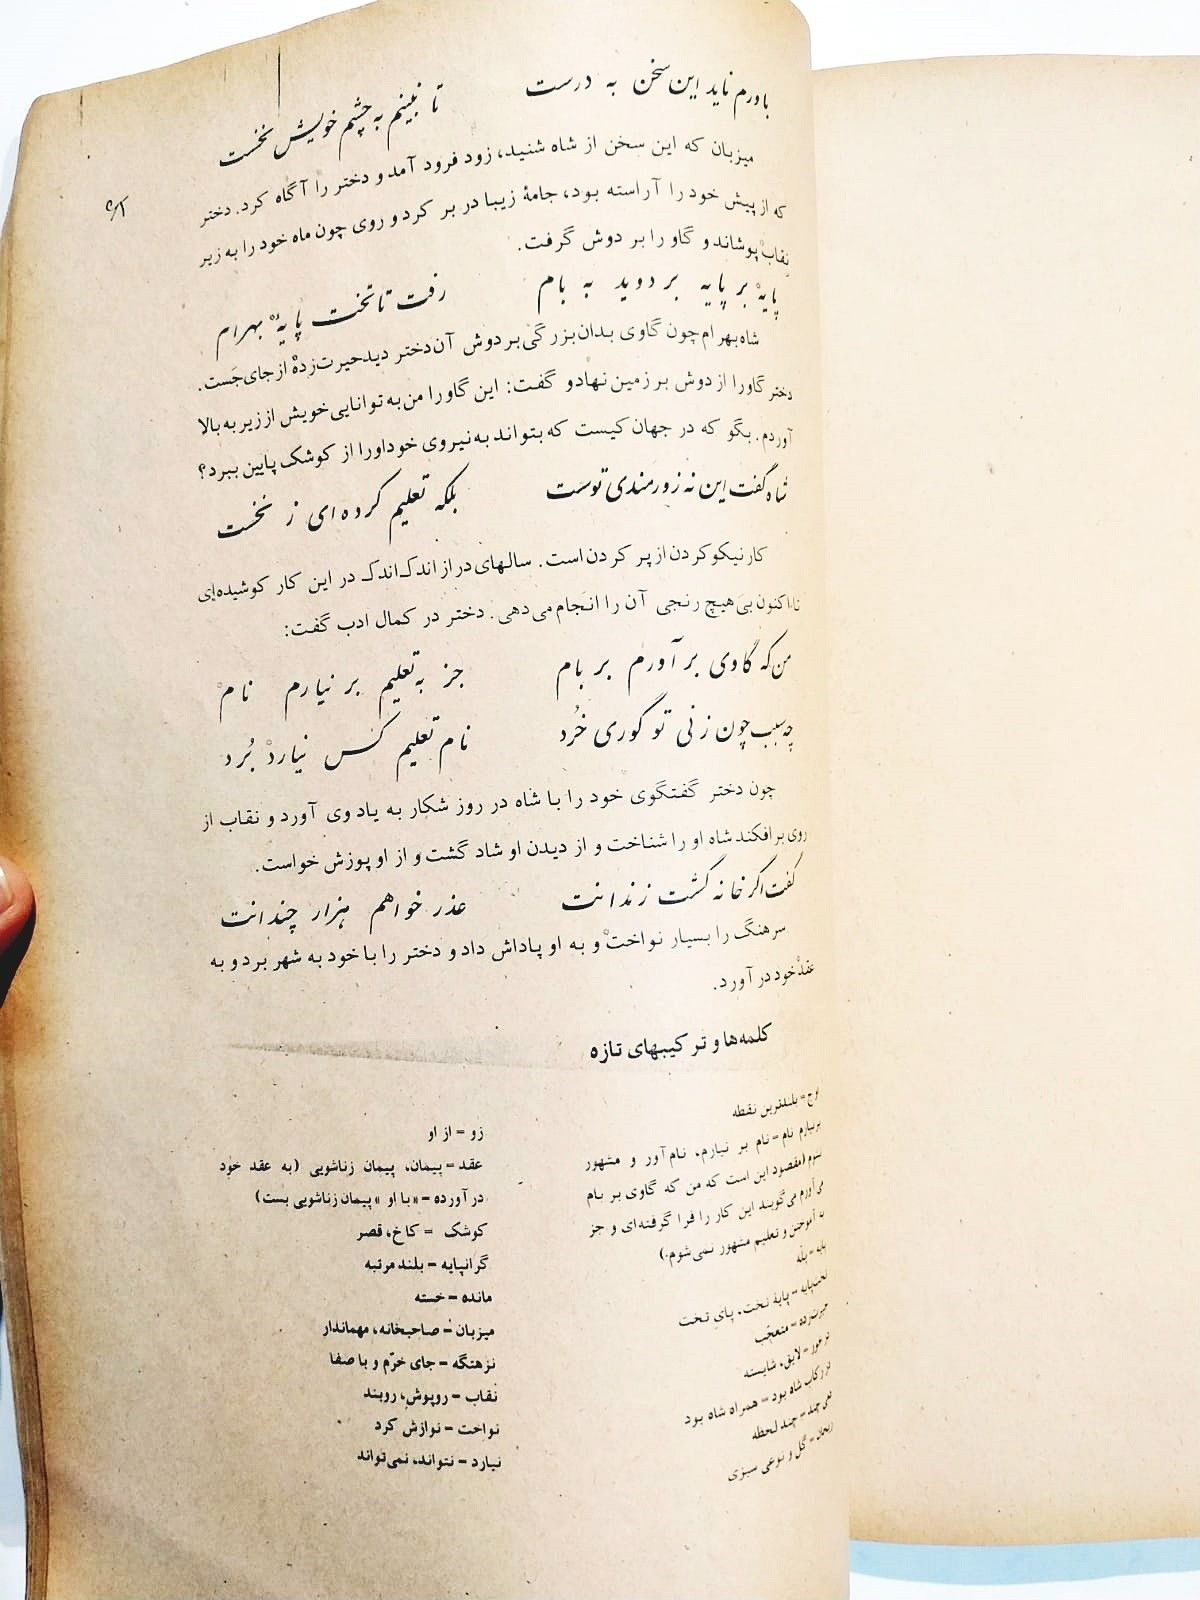 باورم ناید این سخن به درست	تا نبینم به چشم خویش نخست
میزبان که این سخن از شاه شنید، زود فرود آمد و دختر را آگاه کرد. دختر
که از پیش خود را آراسته بود، جامهٔ زیبا در بر کرد و روی چون ماه خود را به زیر
نقاب پوشاند و گاو را بر دوش گرفت.
پایه بر پایه بر دوید به بام	رفت تا تخت پایهٔ بهرام
شاه بهرام چون گاوی بدان بزرگی بر دوش آن دختر دید حیرت‌زده از جای جَست.
دختر گاو را از دوش بر زمین نهاد و گفت: این گاو را من به توانایی خویش از زیر به بالا
آوردم. بگو که در جهان کیست که بتواند به نیروی خود او را از کوشک پایین ببرد؟
شاه گفت این نه زورمندی توست	بلکه تعلیم کرده‌ای ز نخست
کار نیکو کردن از پر کردن است. سالهای دراز اندک اندک در این کار کوشیده‌ای
تا اکنون بی هیچ رنجی آن را انجام می‌دهی. دختر در کمال ادب گفت:
من که گاوی بر آورم بر بام	جز به تعلیم بر نیارم نام
چه سبب چون زنی تو گوری خُرد	نام تعلیم کس نیارد بُرد
چون دختر گفتگوی خود را با شاه در روز شکار به یاد وی آورد و نقاب از
روی برافکند شاه او را شناخت و از دیدن او شاد گشت و از او پوزش خواست.
گفت اگر خانه گشت زندانت	عذر خواهم هزار چندانت
سرهنگ را بسیار نواخت و به او پاداش داد و دختر را با خود به شهر برد و به
عقد خود در آورد.
کلمه‌ها و ترکیبهای تازه
اوج = بلندترین نقطه
برنیارم نام = نام بر نیارم، نام‌آور و مشهور
نشوم (مقصود این است که من که گاوی بر بام
می‌آورم می‌گویند این کار را فرا گرفته‌ای و جز
به آموختن و تعلیم مشهور نمی‌شوم.)
پایه = پله
تخت‌پایه = پایهٔ تخت، پای تخت
حیرت‌زده = متعجّب
درخور = لایق، شایسته
در رکاب شاه بود = همراه شاه بود
دمی چند = چند لحظه
ریحان = گل و نوعی سبزی
زو = از او
عقد = پیمان، پیمان زناشویی (به عقد خود
در آورده = «با او» پیمان زناشویی بست)
کوشک = کاخ، قصر
گرانپایه = بلند مرتبه
مانده = خسته
میزبان = صاحبخانه، مهماندار
نزهتگه = جای خرّم و با صفا
نقاب = روپوش، روبند
نواخت = نوازش کرد
نیارد = نتواند، نمی‌تواند